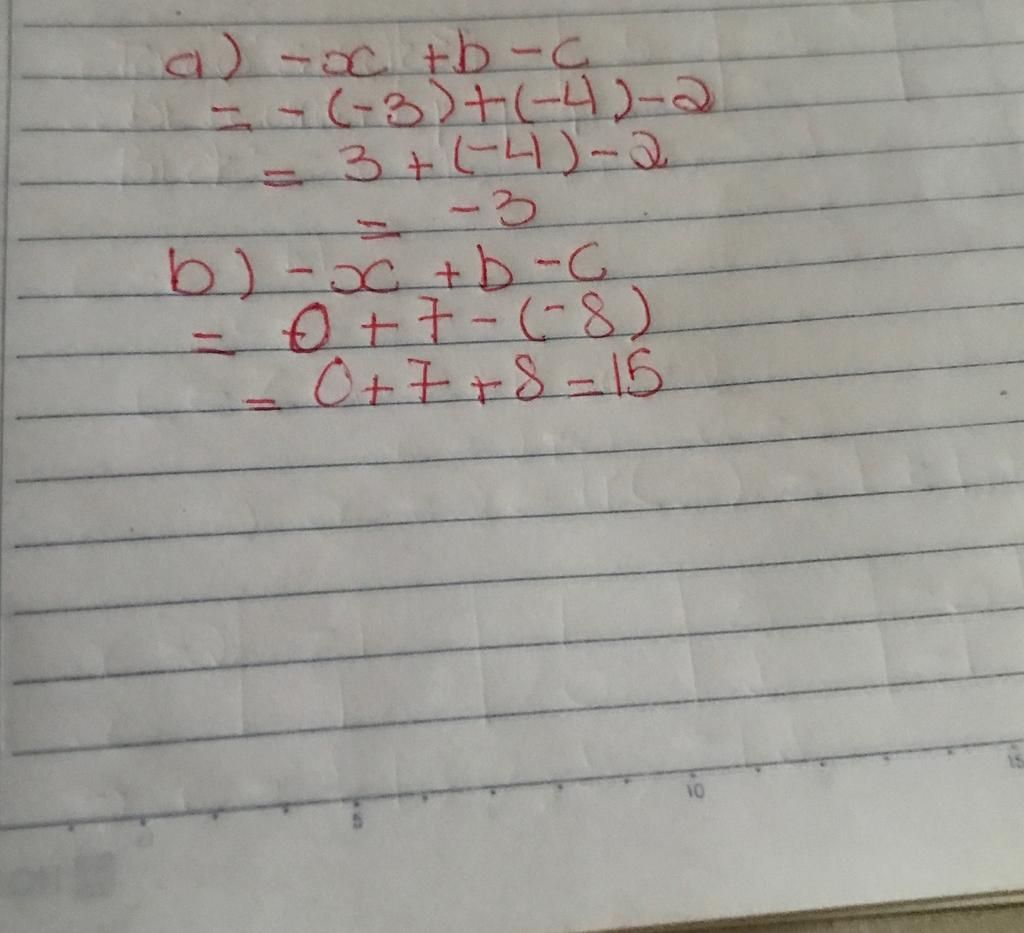 a) -x +b -c
= -(-3)+(-4)-2
= 3 +(-4)-2
= -3
b) -x +b -c
= 0 + 7 -(-8)
= 0+7+8=15
5 10 15